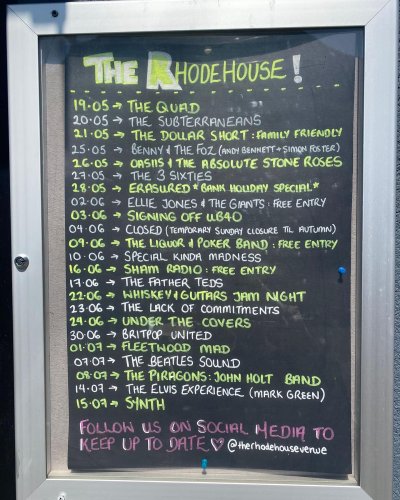 THE RHODEHOUSE!
19.05 → THE QUAD
20.05 → THE SUBTERRANEANS
21.05 → THE DOLLAR SHORT : FAMILY FRIENDLY
25.05 → BENNY & THE FOZ (ANDY BENNETT + SIMON FOSTER)
26.05 → OASIS & THE ABSOLUTE STONE ROSES
27.05 → THE 3 SIXTIES
28.05 → ERASURED *BANK HOLIDAY SPECIAL*
02.06 → ELLIE JONES & THE GIANTS : FREE ENTRY
03.06 → SIGNING OFF UB40
04.06 → CLOSED (TEMPORARY SUNDAY CLOSURE TIL AUTUMN)
09.06 → THE LIQUOR & POKER BAND : FREE ENTRY
10.06 → SPECIAL KINDA MADNESS
16.06 → SHAM RADIO : FREE ENTRY
17.06 → THE FATHER TEDS
22.06 → WHISKEY & GUITARS JAM NIGHT
23.06 → THE LACK OF COMMITMENTS
24.06 → UNDER THE COVERS
30.06 → BRITPOP UNITED
01.07 → FLEETWOOD MAD
07.07 → THE BEATLES SOUND
08.07 → THE PIRAGONS : JOHN HOLT BAND
14.07 → THE ELVIS EXPERIENCE (MARK GREEN)
15.07 → SYNTH
FOLLOW US ON SOCIAL MEDIA TO
KEEP UP TO DATE ♡ @therhodehousevenue